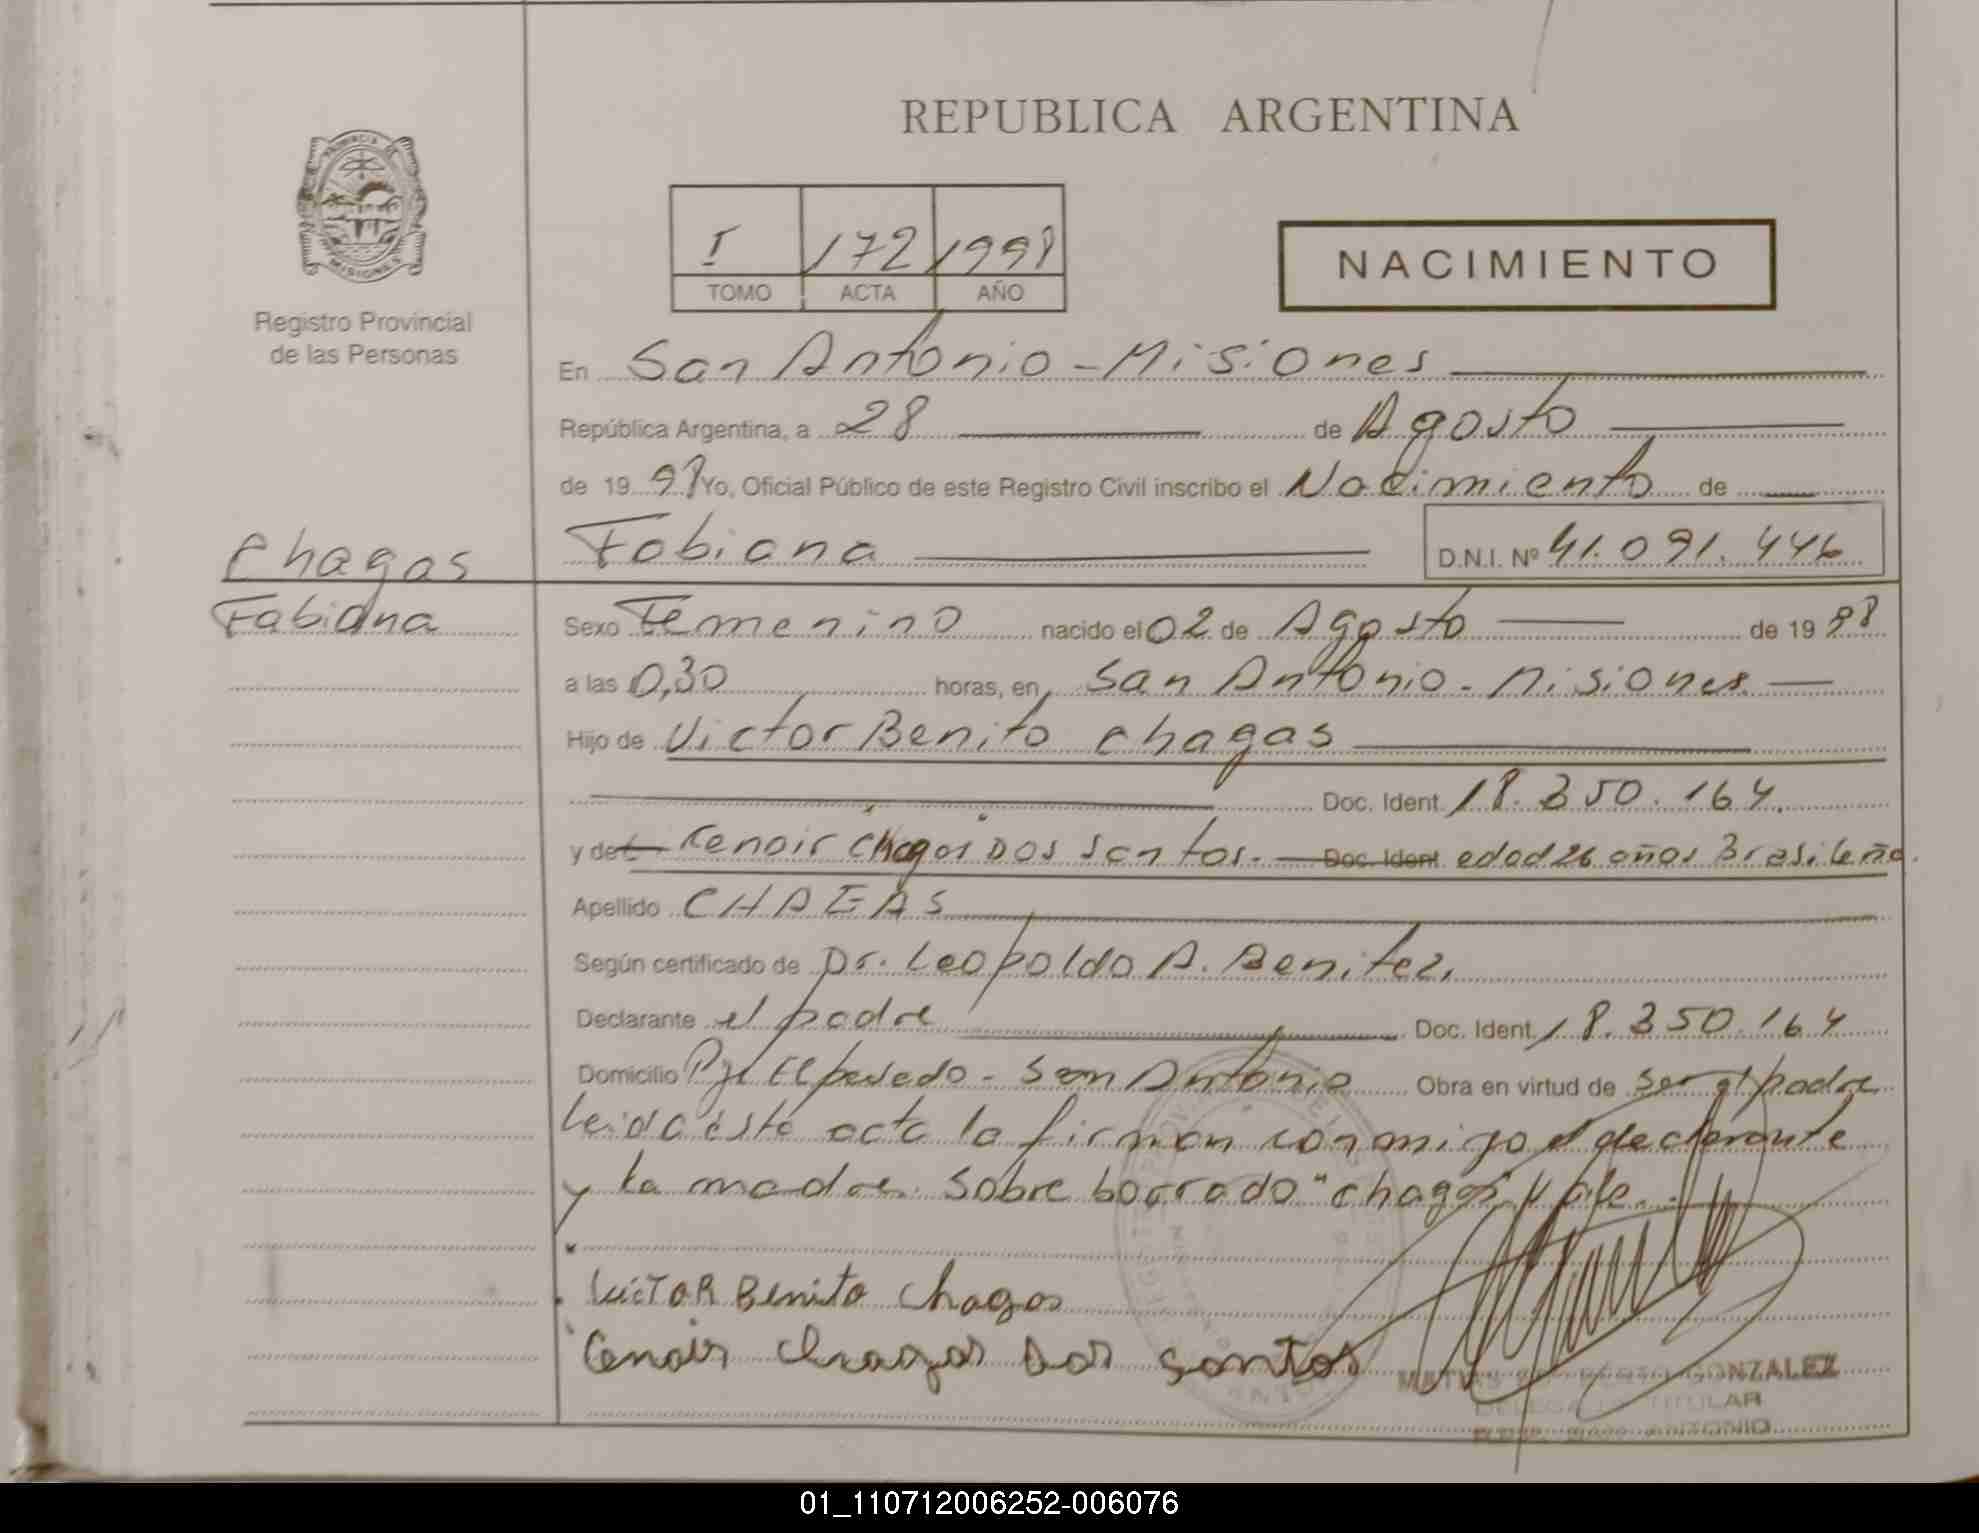 REPUBLICA ARGENTINA
PROVINCIA DE
MISIONES
Registro Provincial
de las Personas
I 172 1998
TOMO ACTA AÑO
NACIMIENTO
En San Antonio - Misiones
República Argentina, a 28 de Agosto
de 19 98 Yo, Oficial Público de este Registro Civil inscribo el Nacimiento de
Chagas
Fabiana
Fabiana D.N.I. Nº 41.091.446
Sexo Femenino nacido el 02 de Agosto de 19 98
a las 0,30 horas, en San Antonio - Misiones
Hijo de Victor Benito Chagas
Doc. Ident. 18.350.164.
y de Cenoir Chagas Dos Santos. Doc. Ident edad 26 años Brasileña.
Apellido CHAGAS
Según certificado de Dr. Leopoldo A. Benitez.
Declarante el padre Doc. Ident. 18.350.164
Domicilio Pje San Antonio Obra en virtud de ser el padre
Leida esta acta la firman conmigo el declarante
y la madre. Sobre borrado "chagas" Vale.
VícTOR Benito Chagas
Cenoir Chagas Dos Santos
GONZALEZ
TITULAR
SAN ANTONIO
01_110712006252-006076